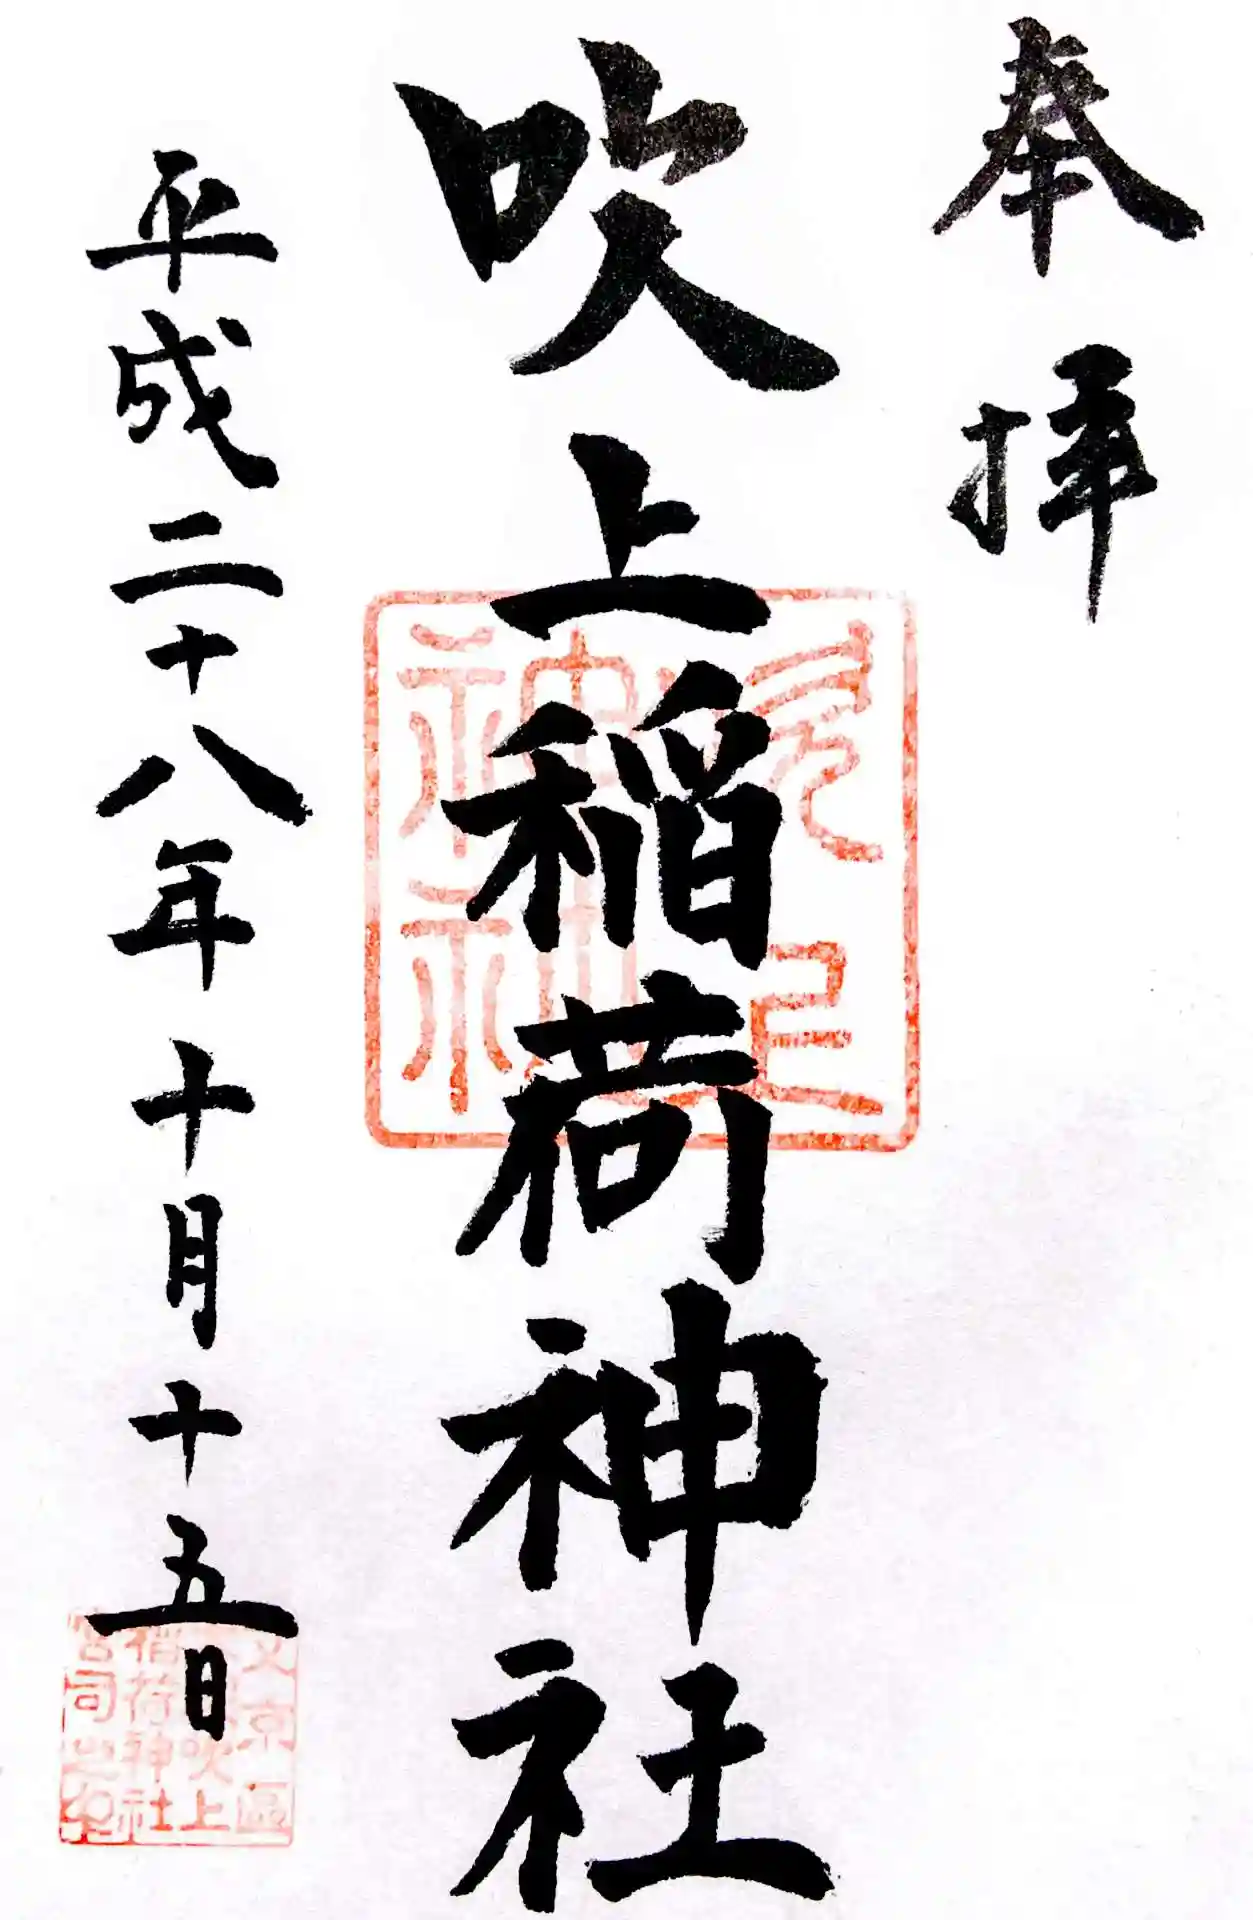 奉拝
吹上稲荷神社
吹上
神社
平成二十八年十月十五日
文京區
吹上
稲荷神社
宮司之印